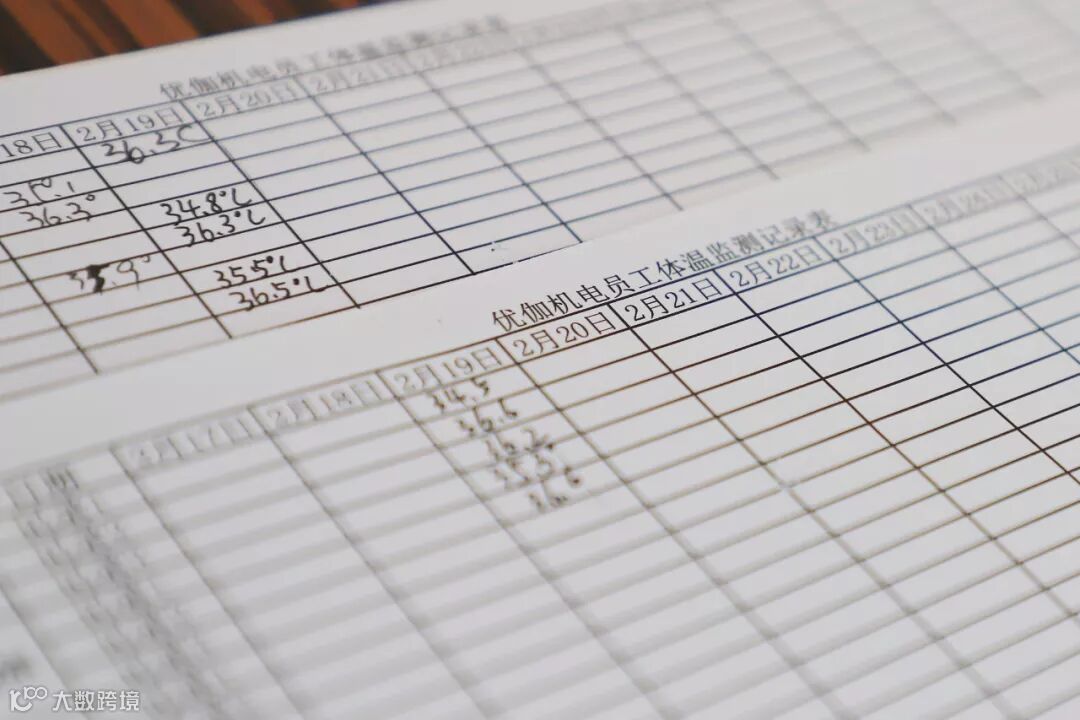 优伽机电员工体温监测记录表
18日 2月19日 2月20日 2月21日 2月22日
36.3C
36.3° 34.8℃
36.3℃
35.5℃
36.5℃
优伽机电员工体温监测记录表
2月17日 2月18日 2月19日 2月20日 2月21日 2月22日 2月23日 2月24日
34.5
36.6
36.2
35.5
36.6
大数跨境